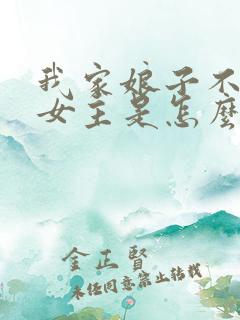 我家娘子不
女主是怎麼
金正賢
未经同意禁止转载